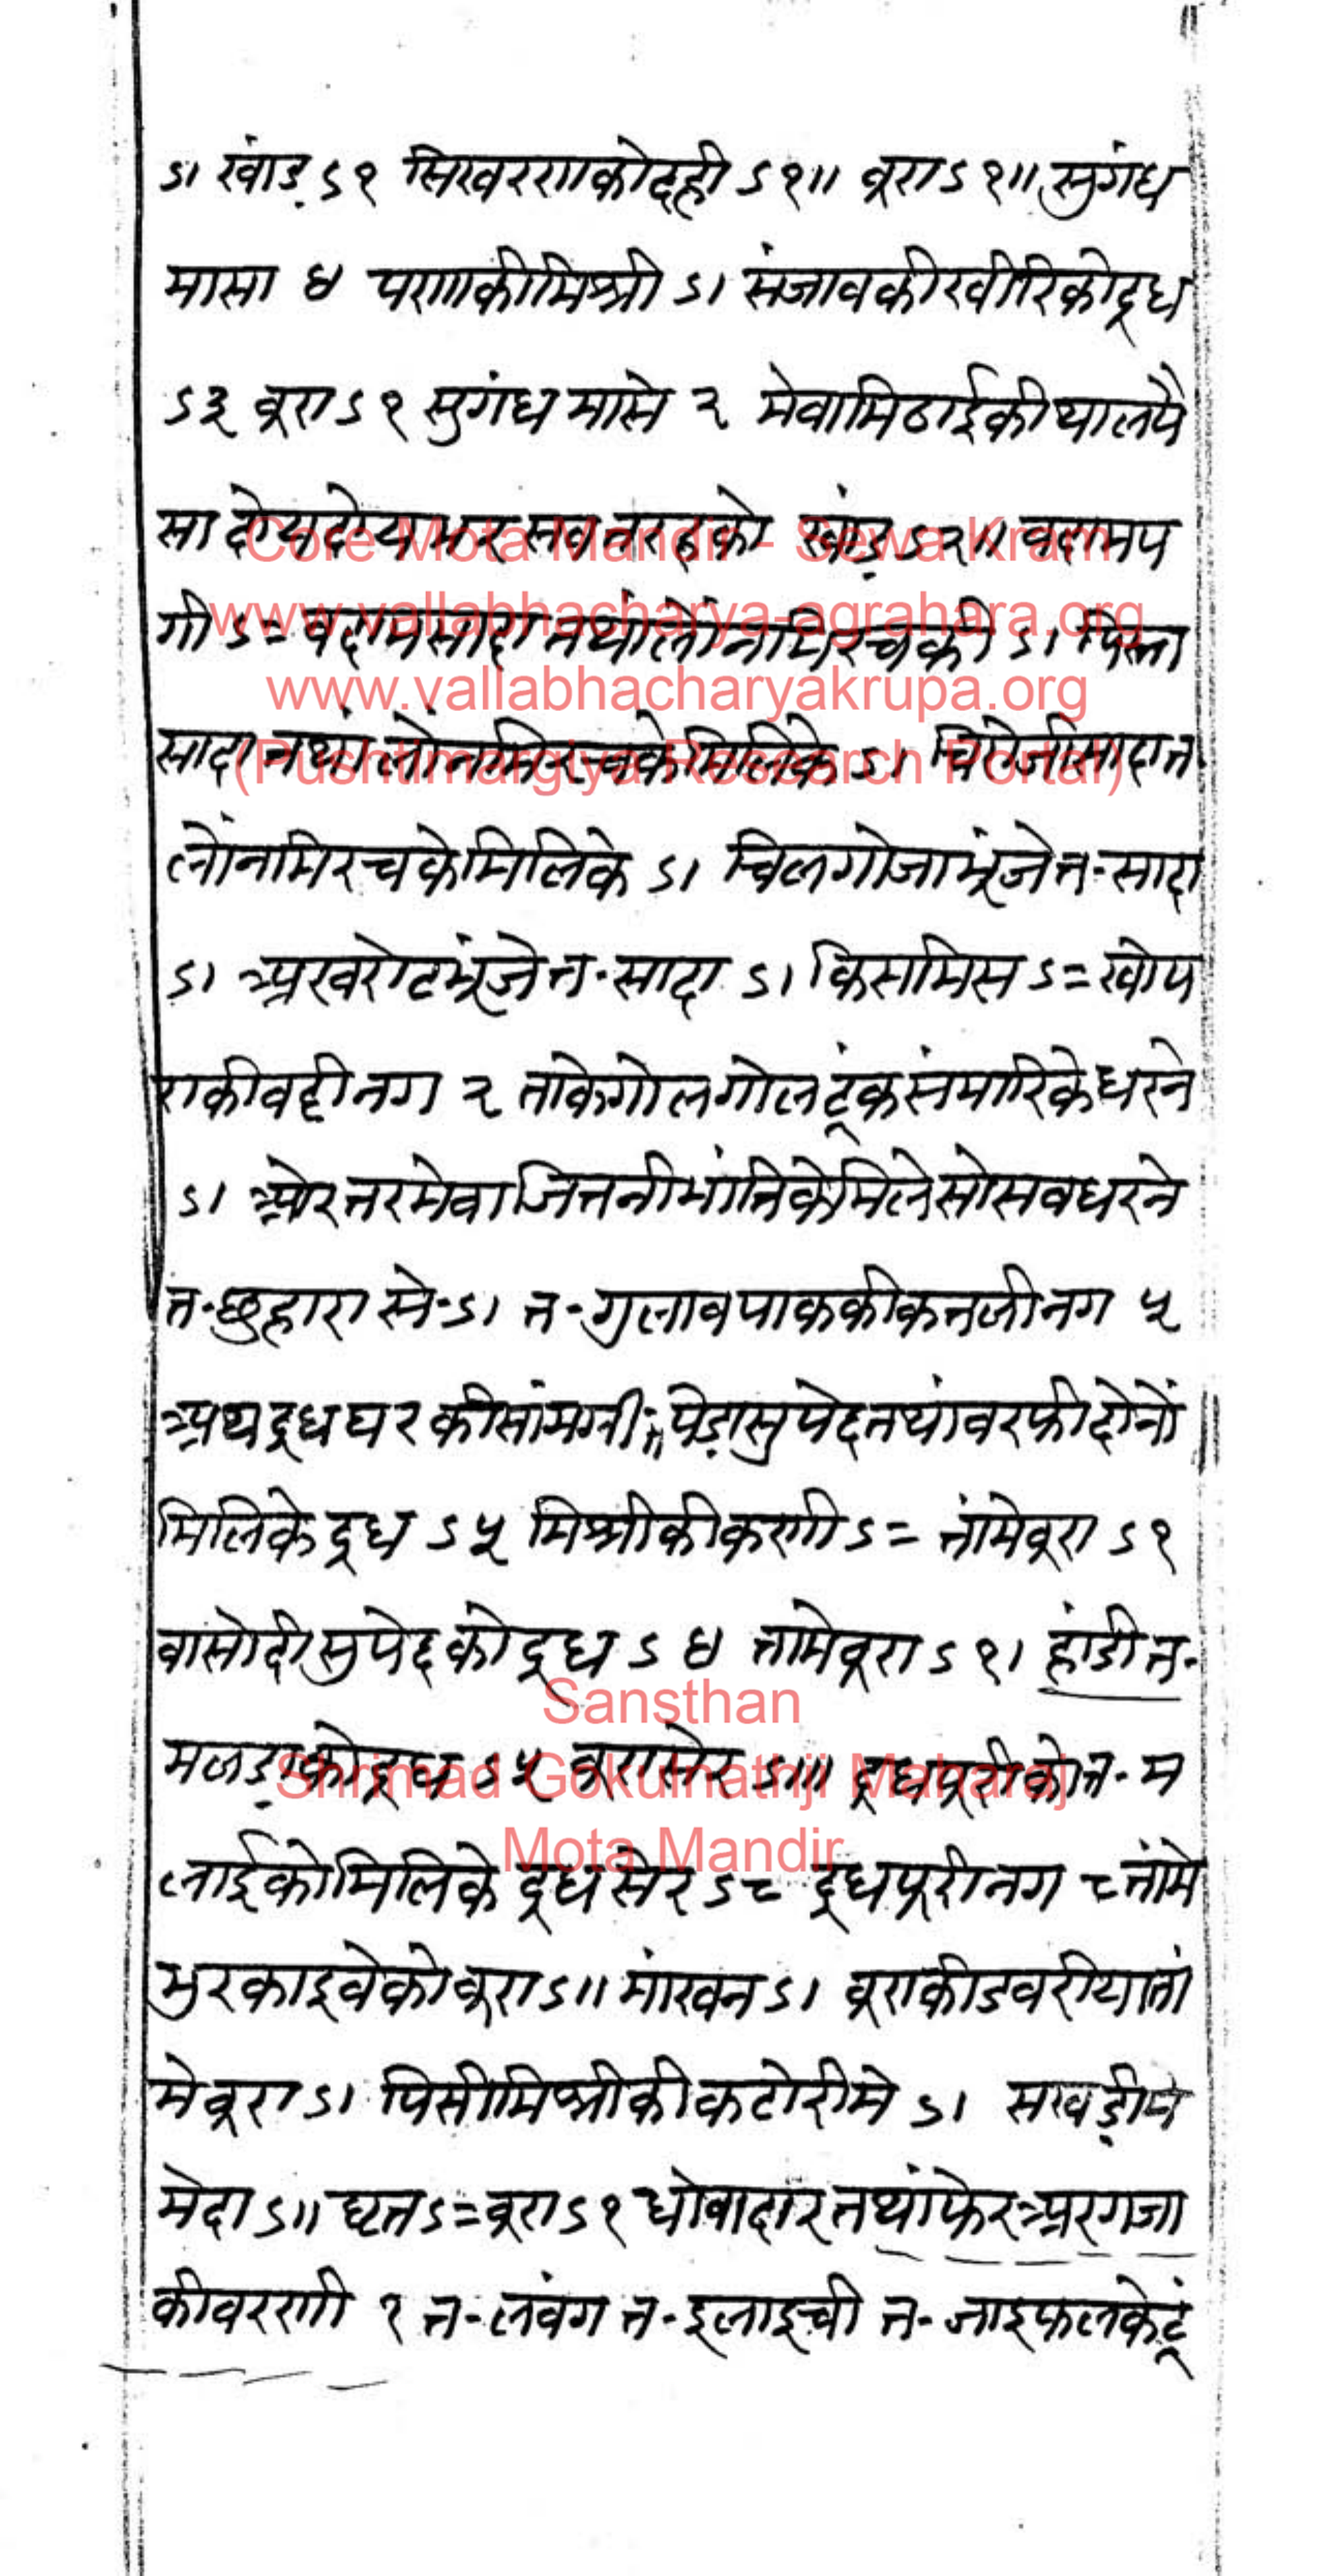 ऽ। खांड़ ऽ१ सिखरराकोदही ऽ१॥ बूरा ऽ१॥ सुगंध
मासा ४ पराकीमिश्री ऽ। संजावकीखीरिकोदूध
ऽ३ बूरा ऽ१ सुगंध मासे २ मेवामिठाईकीथालपै
सा खांड़ ऽ२॥ वदामप
गी ऽ= वदामसादा तथांलोंनमिरचकी ऽ। पिस्ता
सादा तथांलोंनमिरचकेमिलिके ऽ। चिरोंजीसादात
लोंनमिरचकेमिलिके ऽ। चिलगोजाभूंजेत-सादा
ऽ। अखरोटभूंजेत-सादा ऽ। किसमिस ऽ= खोप
राकीवट्टीनग २ ताकेगोलगोलटूंकसंभारिकेधरने
ऽ। ओरतरमेवाजितनीभांतिकेमिलेसोसवधरने
त-छुहारा से-ऽ। त-गुलावपाककीकतलीनग ५
अथदूधघरकीसांमग्री॥ पेड़ासुपेदतथांवरफीदोनों
मिलिकेदूध ऽ५ मिश्रीकीकणी ऽ= तांमेबूरा ऽ१
वासोंदीसुपेदकोदूध ऽ४ तामेबूरा ऽ१। हांडीत-
मलड़ाकोदूध ऽ५ बूरासेर ऽ॥। दूधपूरीकोत-म
लाईकोमिलिकेदूधसेर ऽ८ दूधपूरीनग ८ तांमे
भुरकाइवेकोबूरा ऽ॥ मांखन ऽ। बूराकीडवरीयातां
मेबूरा ऽ। पिसीमिश्रीकीकटोरीमे ऽ। सखड़ीमे
मेदा ऽ॥ घृत ऽ= बूरा ऽ१ धोवादारतथांफेरअरगजा
कीवरणी १ त-लंवग त-इलाइची त-जाइफलकेटूं
Core Mota Mandir - Sewa Kram
www.vallabhacharya-agrahara.org
www.vallabhacharyakrupa.org
(Pushtimargiya Research Portal)
Sansthan
Shrimad Gokulnathji Maharaj
Mota Mandir